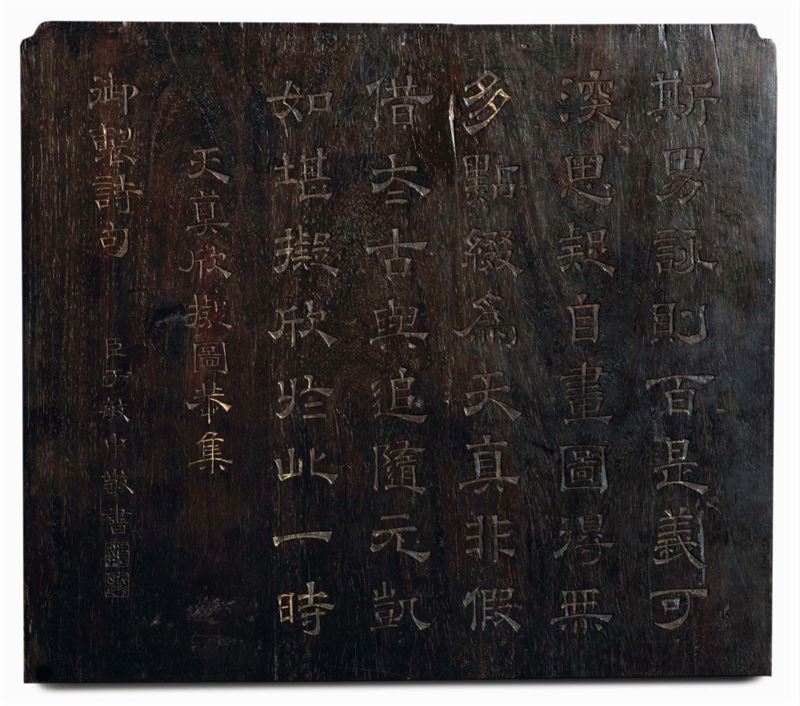 斯男詠則百是義可
深思疑自畫圖得無
多點綴為天真非假
借夳古與追隨元凱
如堪擬欣於此一時
天真欣擬圖恭集
御製詩句 臣于敏中敬書